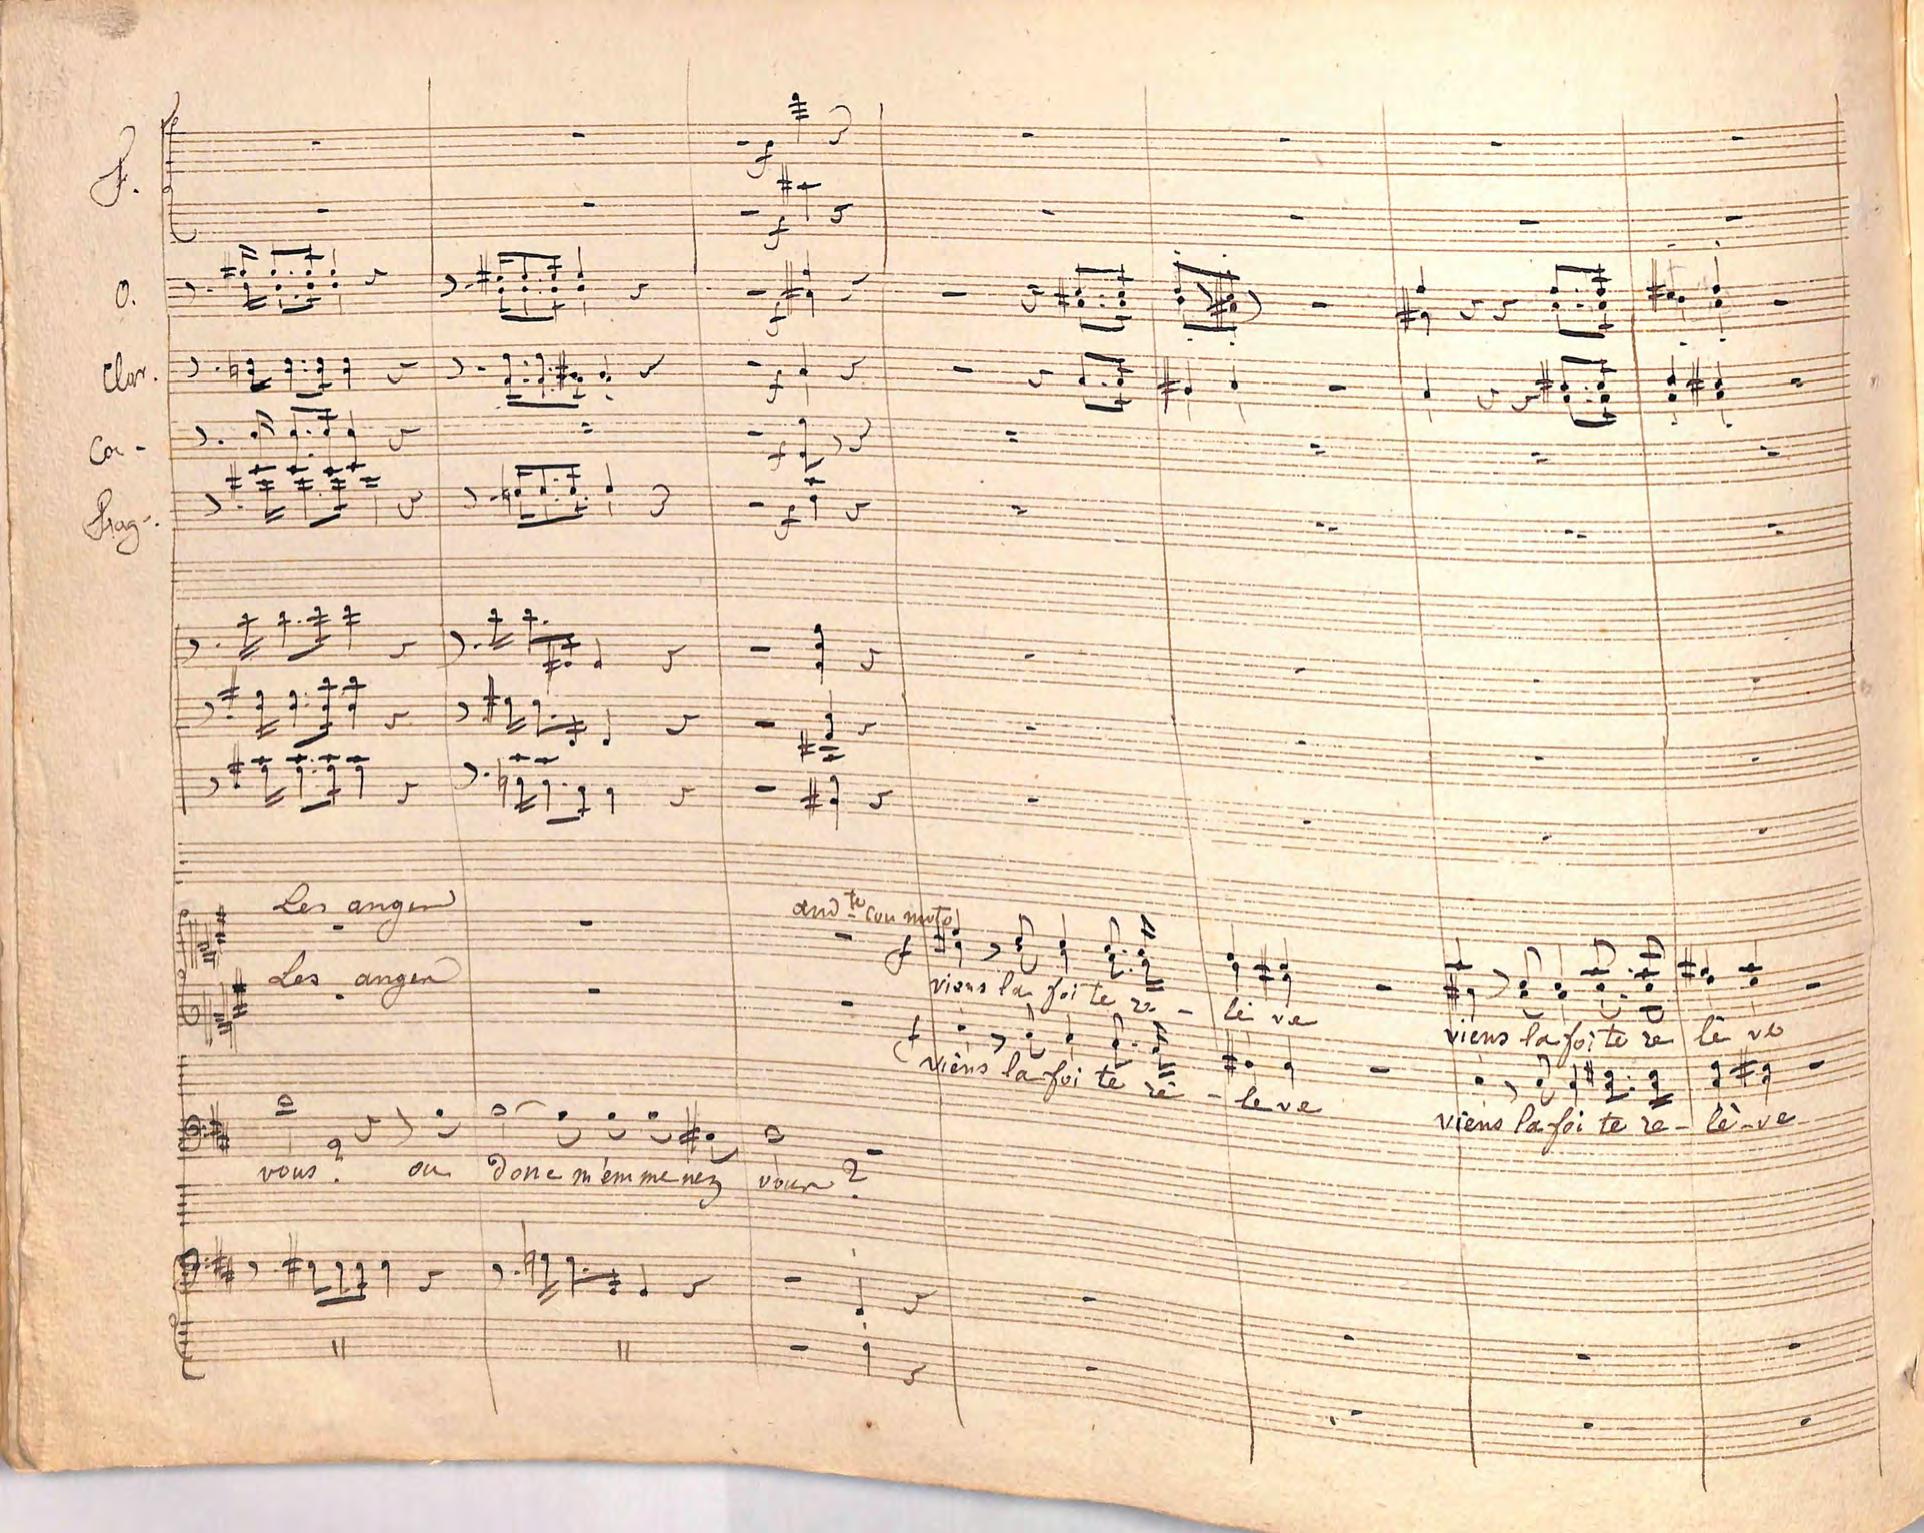 f.
f
f
O.
f
Clar.
f
Co -
f
Frag -.
f
Les anges
and.te con moto
f
viens la foi te re - lè ve
viens la foi te re lè ve
Les anges
f
viens la foi te re - le ve
viens la foi te re - lè - ve
vous? ou donc m'emmenez vous?